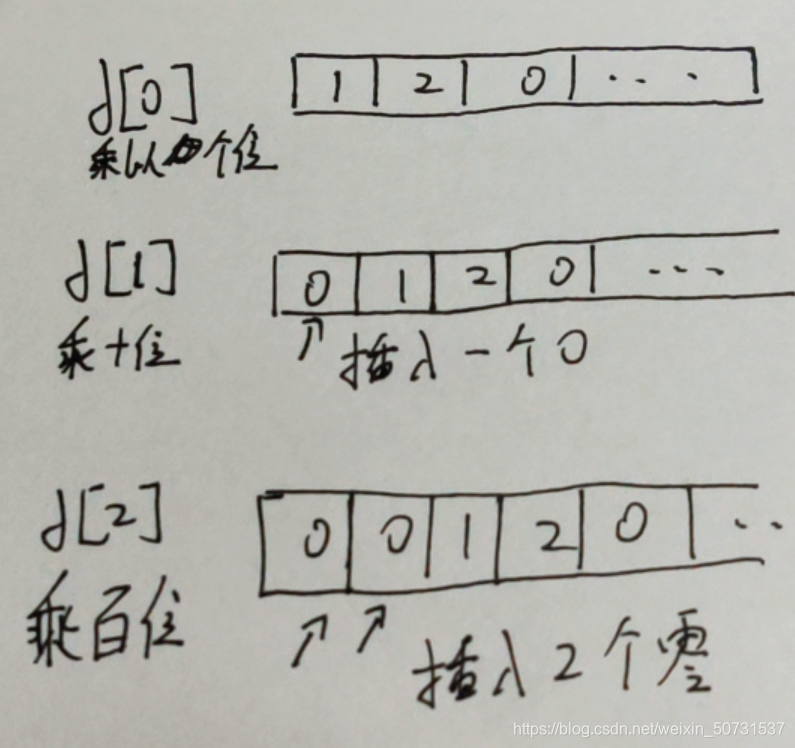 d[0] 1 2 0 ...
乘以个位
d[1] 0 1 2 0 ...
乘十位 插入一个0
d[2] 0 0 1 2 0 ..
乘百位 插入2个零
https://blog.csdn.net/weixin_50731537